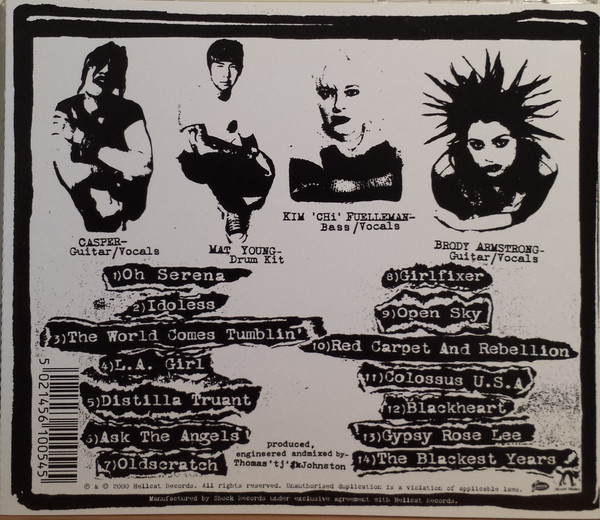 CASPER-
Guitar/Vocals
MAT YOUNG-
Drum Kit
KIM 'CHi' FUELLEMAN-
Bass/Vocals
BRODY ARMSTRONG-
Guitar/Vocals
1)Oh Serena
2)Idoless
3)The World Comes Tumblin'
4)L.A. Girl
5)Distilla Truant
6)Ask The Angels
7)Oldscratch
8)Girlfixer
9)Open Sky
10)Red Carpet And Rebellion
11)Colossus U.S.A
12)Blackheart
13)Gypsy Rose Lee
14)The Blackest Years
5 021456 100545
produced,
engineered andmixed by-
Thomas 'tj' Johnston
℗ & © 2000 Hellcat Records. All rights reserved. Unauthorised duplication is a violation of applicable laws.
Manufactured by Shock Records under exclusive agreement with Hellcat Records.